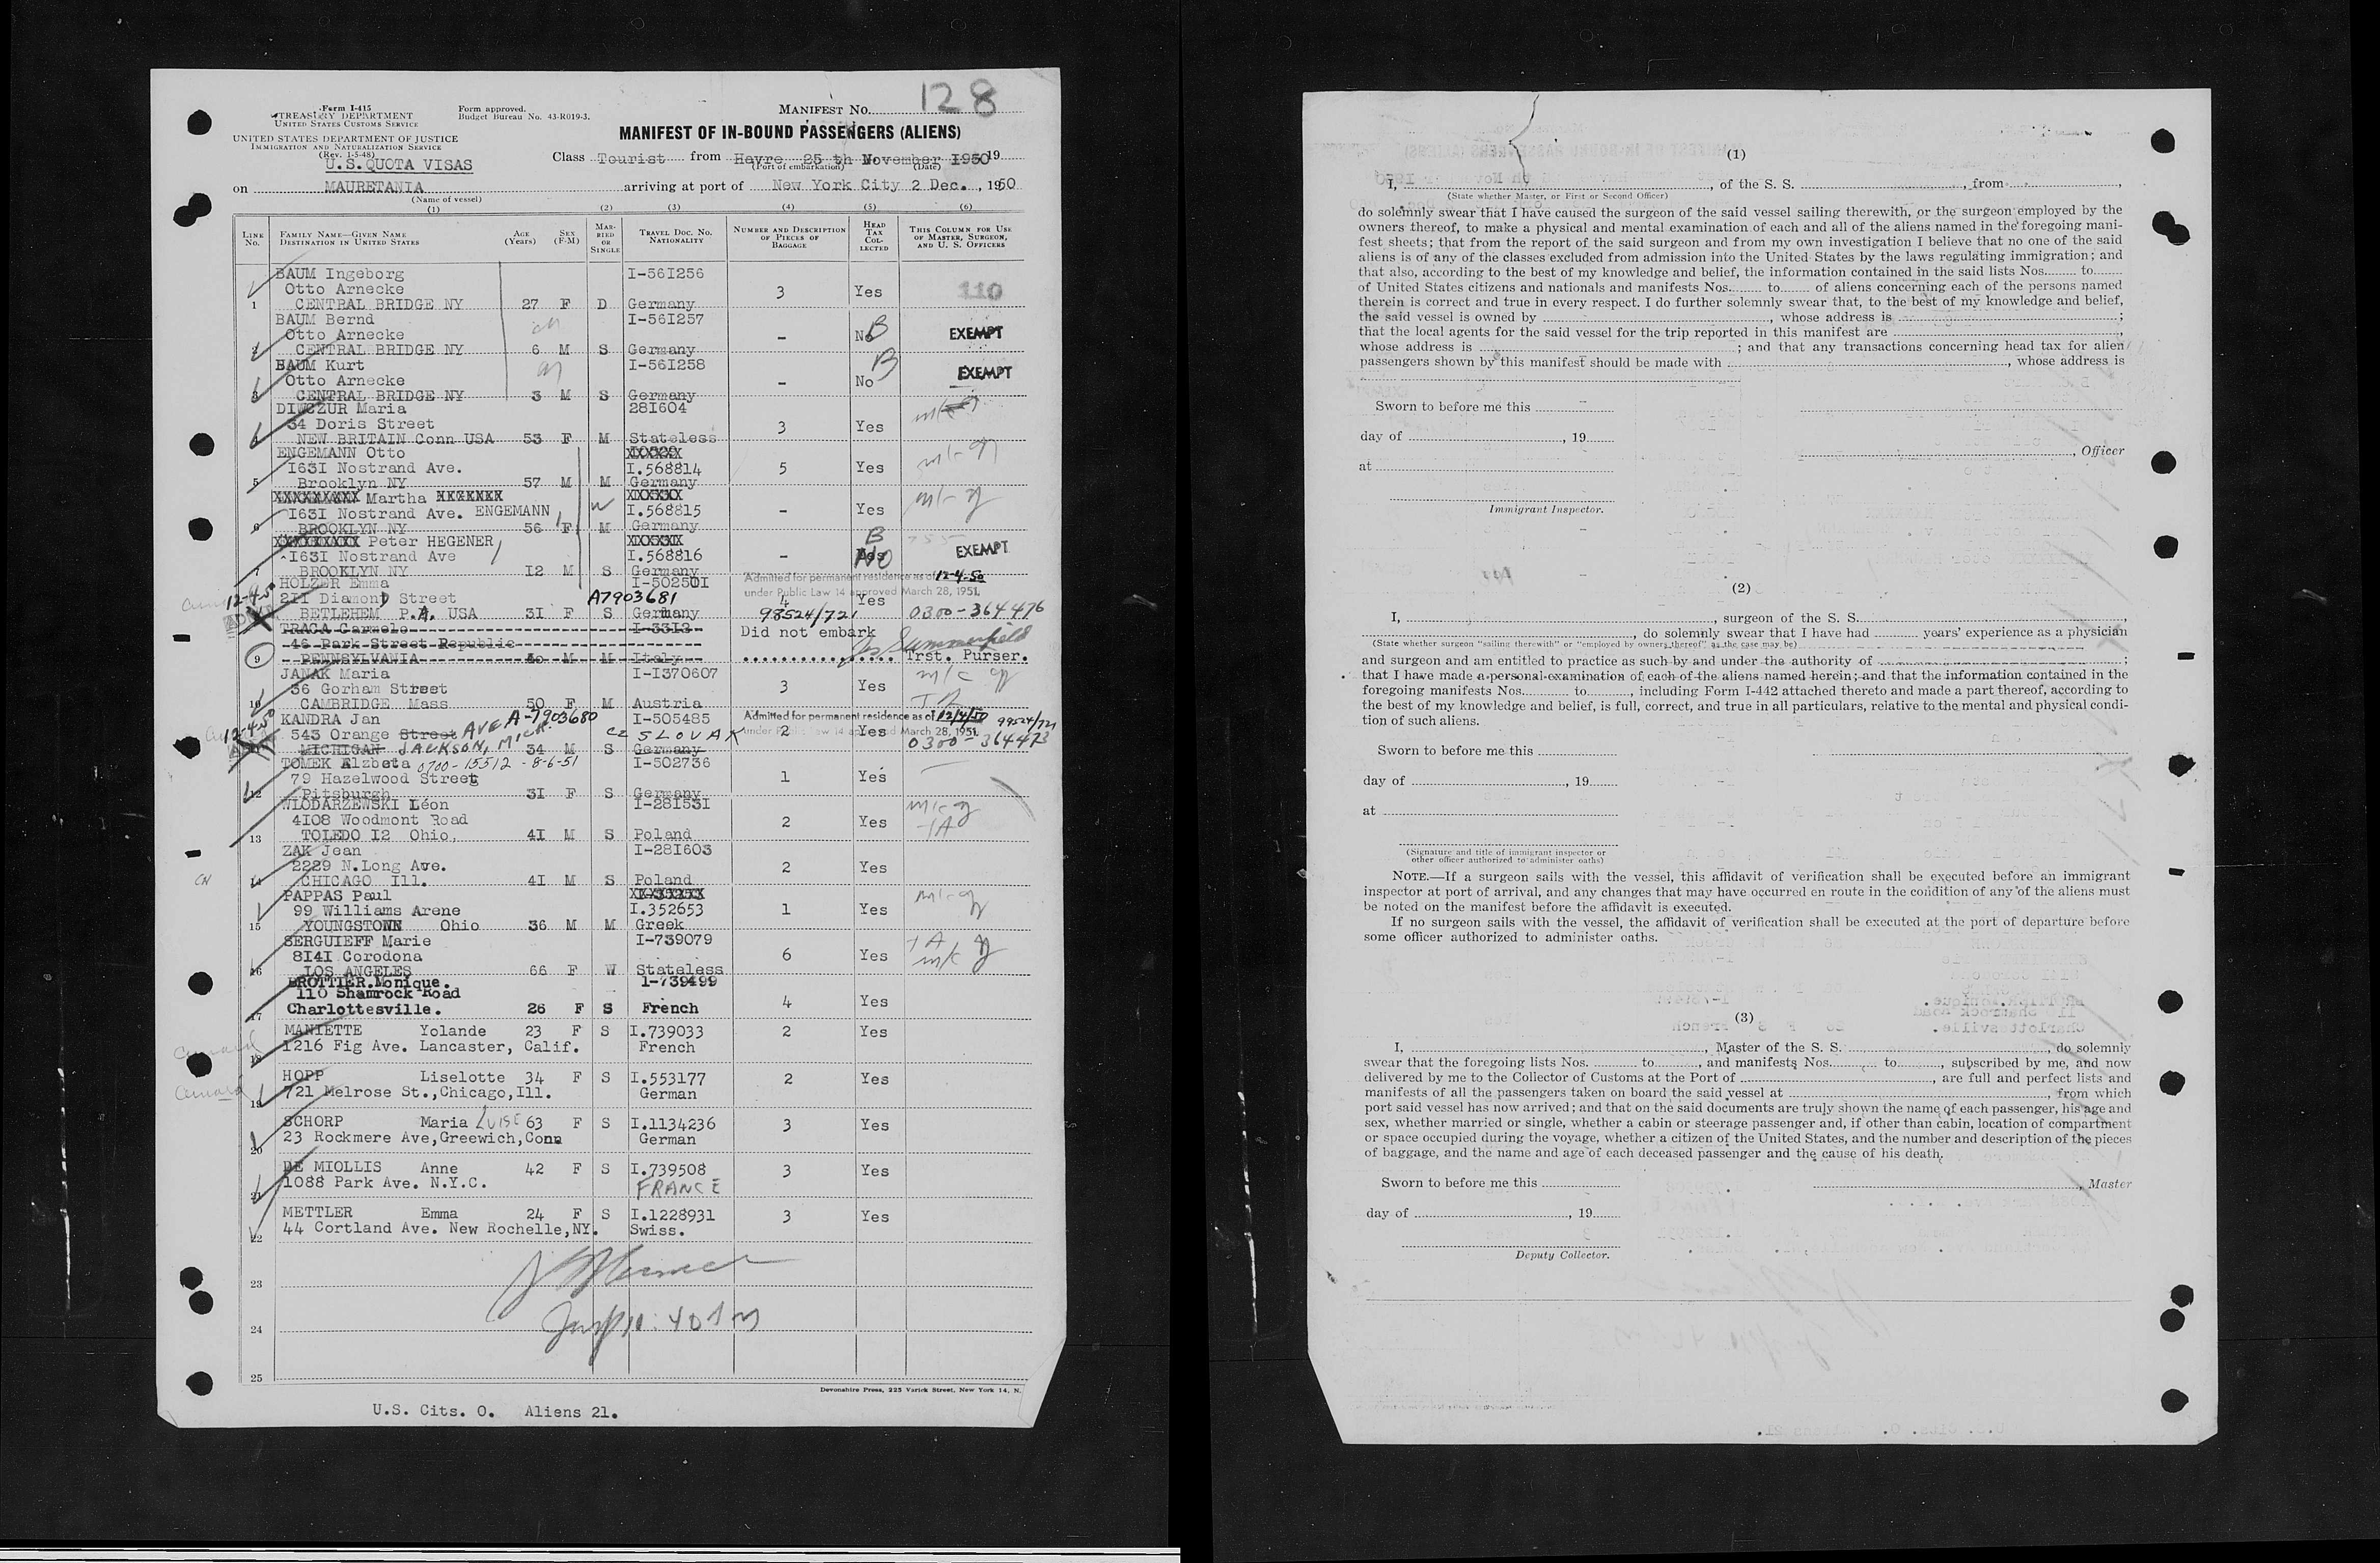 Form I-415
TREASURY DEPARTMENT
UNITED STATES CUSTOMS SERVICE
Form approved.
Budget Bureau No. 43-R019-3.
MANIFEST No. 128
UNITED STATES DEPARTMENT OF JUSTICE
IMMIGRATION AND NATURALIZATION SERVICE
(Rev. 1-5-48)
U.S.QUOTA VISAS
MANIFEST OF IN-BOUND PASSENGERS (ALIENS)
Class Tourist from Havre 25 th November 1950 19
(Port of embarkation) (Date)
on MAURETANIA arriving at port of New York City 2 Dec. , 1950
(Name of vessel)
(1) (2) (3) (4) (5) (6)
LINE No. FAMILY NAME—GIVEN NAME DESTINATION IN UNITED STATES AGE (Years) SEX (F-M) MARRIED OR SINGLE TRAVEL DOC. No. NATIONALITY NUMBER AND DESCRIPTION OF PIECES OF BAGGAGE HEAD TAX COLLECTED THIS COLUMN FOR USE OF MASTER, SURGEON, AND U. S. OFFICERS
BAUM Ingeborg I-56I256
Otto Arnecke 3 Yes 110
1 CENTRAL BRIDGE NY 27 F D Germany
BAUM Bernd I-56I257
Otto Arnecke - No B EXEMPT
2 CENTRAL BRIDGE NY 6 M S Germany
BAUM Kurt I-56I258
Otto Arnecke - No B EXEMPT
3 CENTRAL BRIDGE NY 3 M S Germany
DIWCZUR Maria 28I604
34 Doris Street 3 Yes
4 NEW BRITAIN Conn USA 53 F M Stateless
ENGEMANN Otto XXXXXX
I63I Nostrand Ave. I.568814 5 Yes
5 Brooklyn NY 57 M M Germany
XXXXXXXXX Martha XXXXXXX XXXXXX
I63I Nostrand Ave. ENGEMANN I.568815 - Yes
6 BROOKLYN NY 56 F M Germany
XXXXXXXXX Peter HEGENER XXXXXX B
I63I Nostrand Ave I.568816 - No EXEMPT
7 BROOKLYN NY I2 M S Germany
HOLZER Emma I-50250I Admitted for permanent residence as of 12-4-50
12-4-50 2II Diamond Street A7903681 under Public Law 14 approved March 28, 1951. 4 Yes
BETLEHEM P.A. USA 3I F S Germany 98524/721 0300-364476
TRACA Carmelo I-33I3 Did not embark
46 Park Street Republic Summerfield
9 PENNSYLVANIA 40 M M Italy Trst. Purser.
JANAK Maria I-I370607
36 Gorham Street 3 Yes
10 CAMBRIDGE Mass 50 F M Austria
KANDRA Jan A-7903680 I-505485 Admitted for permanent residence as of 12/4/50 99524/721
12-4-50 543 Orange Street AVE CZ SLOVAK under Public Law 14 approved March 28, 1951. 2 Yes
MICHIGAN JACKSON, MICH. 34 M S Germany 0300-364473
TOMEK Alzbeta 0700-15512 - 8-6-51 I-502736
79 Hazelwood Street 1 Yes
12 Pitsburgh 3I F S Germany
WLODARZEWSKI Léon I-28I53I
4I08 Woodmont Road 2 Yes
13 TOLEDO I2 Ohio, 4I M S Poland
ZAK Jean I-28I603
2229 N.Long Ave. 2 Yes
14 CHICAGO Ill. 4I M S Poland
PAPPAS Paul
99 Williams Arene I.352653 1 Yes
15 YOUNGSTONN Ohio 36 M M Greek
SERGUIEFF Marie I-739079
8I4I Corodona 6 Yes
16 LOS ANGELES 66 F W Stateless
BROTTIER.Monique. 1-739499
110 Shamrock Road 4 Yes
17 Charlottesville. 26 F S French
MANIETTE Yolande 23 F S I.739033 2 Yes
18 1216 Fig Ave. Lancaster, Calif. French
HOPP Liselotte 34 F S I.553177 2 Yes
19 721 Melrose St.,Chicago,Ill. German
SCHORP Maria Luise 63 F S I.1134236 3 Yes
20 23 Rockmere Ave,Greewich,Conn German
DE MIOLLIS Anne 42 F S I.739508 3 Yes
21 1088 Park Ave. N.Y.C. FRANCE
METTLER Emma 24 F S I.1228931 3 Yes
22 44 Cortland Ave. New Rochelle,NY. Swiss.
23
24
25
Devonshire Press, 225 Varick Street, New York 14, N.
U.S. Cits. O. Aliens 21.
(1)
I, , of the S. S. , from ,
(State whether Master, or First or Second Officer)
do solemnly swear that I have caused the surgeon of the said vessel sailing therewith, or the surgeon employed by the
owners thereof, to make a physical and mental examination of each and all of the aliens named in the foregoing mani-
fest sheets; that from the report of the said surgeon and from my own investigation I believe that no one of the said
aliens is of any of the classes excluded from admission into the United States by the laws regulating immigration; and
that also, according to the best of my knowledge and belief, the information contained in the said lists Nos. to
of United States citizens and nationals and manifests Nos. to of aliens concerning each of the persons named
therein is correct and true in every respect. I do further solemnly swear that, to the best of my knowledge and belief,
the said vessel is owned by , whose address is ;
that the local agents for the said vessel for the trip reported in this manifest are ,
whose address is ; and that any transactions concerning head tax for alien
passengers shown by this manifest should be made with , whose address is
Sworn to before me this
day of , 19
, Officer
at
Immigrant Inspector.
(2)
I, , surgeon of the S. S. ,
, do solemnly swear that I have had years' experience as a physician
(State whether surgeon "sailing therewith" or "employed by owners thereof" as the case may be)
and surgeon and am entitled to practice as such by and under the authority of ;
that I have made a personal examination of each of the aliens named herein; and that the information contained in the
foregoing manifests Nos. to , including Form I-442 attached thereto and made a part thereof, according to
the best of my knowledge and belief, is full, correct, and true in all particulars, relative to the mental and physical condi-
tion of such aliens.
Sworn to before me this
day of , 19
at
(Signature and title of immigrant inspector or
other officer authorized to administer oaths)
NOTE.—If a surgeon sails with the vessel, this affidavit of verification shall be executed before an immigrant
inspector at port of arrival, and any changes that may have occurred en route in the condition of any of the aliens must
be noted on the manifest before the affidavit is executed.
If no surgeon sails with the vessel, the affidavit of verification shall be executed at the port of departure before
some officer authorized to administer oaths.
(3)
I, , Master of the S. S. , do solemnly
swear that the foregoing lists Nos. to , and manifests Nos. to , subscribed by me, and now
delivered by me to the Collector of Customs at the Port of , are full and perfect lists and
manifests of all the passengers taken on board the said vessel at , from which
port said vessel has now arrived; and that on the said documents are truly shown the name of each passenger, his age and
sex, whether married or single, whether a cabin or steerage passenger and, if other than cabin, location of compartment
or space occupied during the voyage, whether a citizen of the United States, and the number and description of the pieces
of baggage, and the name and age of each deceased passenger and the cause of his death.
Sworn to before me this , Master
day of , 19
Deputy Collector.